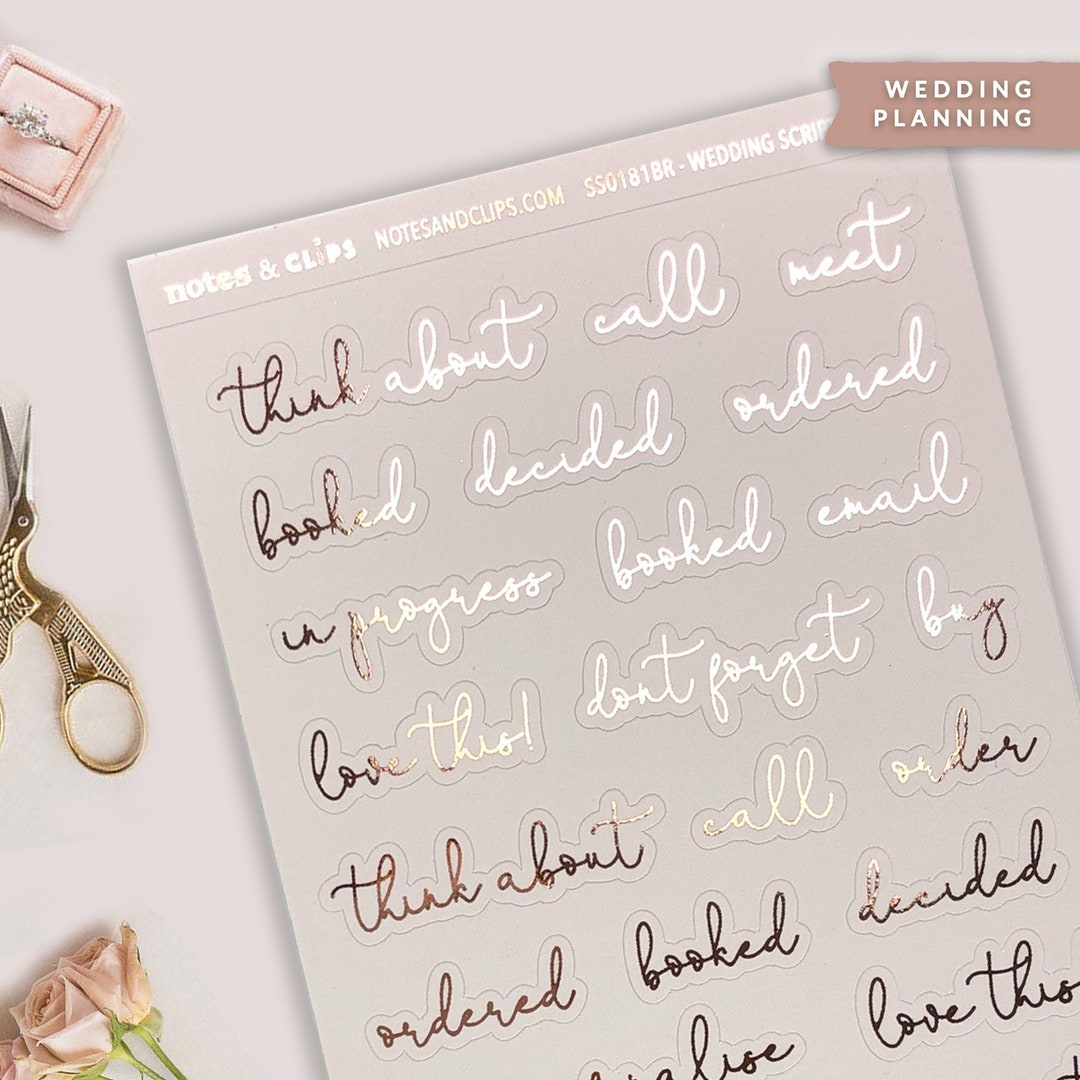 WEDDING
PLANNING
notes & clips NOTESANDCLIPS.COM SS0181BR - WEDDING
think about call meet
booked decided ordered
in progress booked email
love this! dont forget buy
think about call order
ordered booked decided
love this